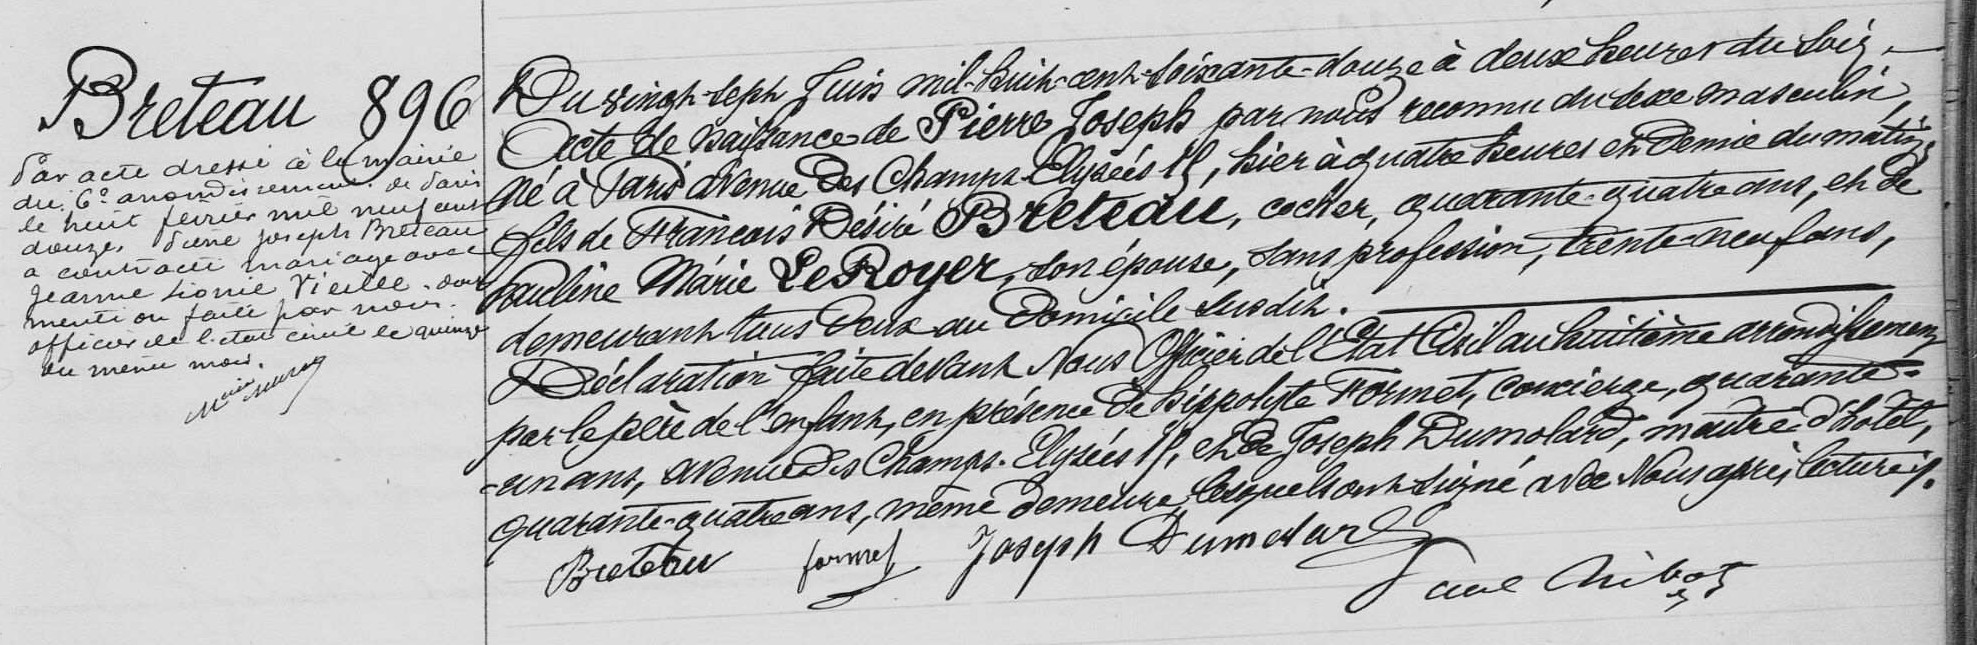 Breteau 896
Par acte dressé à la mairie
du 6e arrondissement de Paris
le huit février mil neuf cent
douze, Pierre Joseph Breteau
a contracté mariage avec
Jeanne Léonie Vieille. dont
mention faite par nous.
officier de l'état civil le quinze
du même mois.
Du vingt-sept Juin mil-huit-cent-soixante-douze à deux heures du soir,
Acte de naissance de Pierre Joseph par nous reconnu du sexe masculin,
né à Paris avenue des Champs-Elysées, hier à quatre heures et demie du matin,
fils de François Désiré Breteau, cocher, quarante-quatre ans, et de
Pauline Marie LeRoyer, son épouse, sans profession, trente-neuf ans,
demeurant tous deux au domicile susdit.
Déclaration faite devant Nous Officier de l'Etat Civil au huitième arrondissement
par le père de l'enfant, en présence de hippolyte Formet, concierge, quarante-
-un ans, avenue des Champs-Elysées, et de Joseph Dumolard, maître d'hôtel,
quarante-quatre ans, même demeure, lesquels ont signé avec Nous après lecture.
Breteau formet Joseph Dumolard
Paul